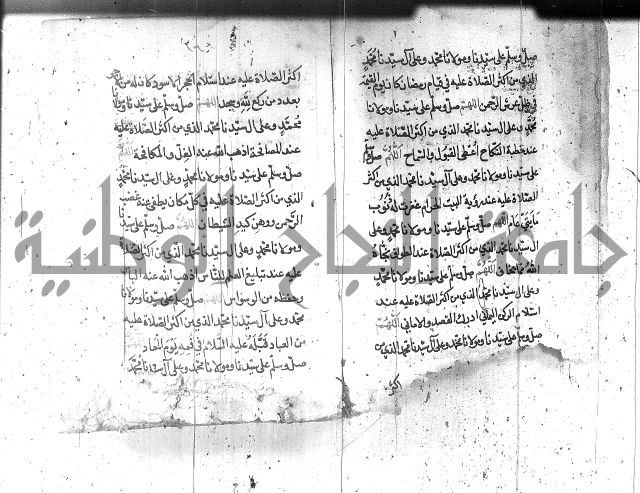 صل وسلم على سيدنا ومولانا محمد وعلى آل سيدنا محمد
الذي من اكثر الصلاة عليه في قيام رمضان كان يوم القيمة
في ظل عرش الرحمن اللهم صل وسلم على سيدنا ومولانا
محمد وعلى آل سيدنا محمد الذي من اكثر الصلاة عليه
عند خطبة النكاح اعطي القبول والسماح اللهم صل وسلم
على سيدنا ومولانا محمد وعلى آل سيدنا محمد الذي من اكثر
الصلاة عليه عند رؤية البيت الحرام غفرت له ذنوب
عام اللهم صل وسلم على سيدنا ومولانا محمد وعلى
آل سيدنا محمد الذي من اكثر الصلاة عليه عند الطواف نجاه
الله مما يخاف اللهم صل وسلم على سيدنا ومولانا محمد
وعلى آل سيدنا محمد الذي من اكثر الصلاة عليه عند
استلام الركن اليماني ادرك القصد والاماني اللهم
صل وسلم على سيدنا ومولانا محمد وعلى آل سيدنا محمد الذي من
اكثر
اكثر الصلاة عليه عند استلام الحجر الاسود كان له من
بعدد من ركع لله وسجد اللهم صل وسلم على سيدنا ومولانا
محمد وعلى آل سيدنا محمد الذي من اكثر الصلاة عليه
عند المصافحة اذهب الله عنه الغل والمكافحة اللهم
صل وسلم على سيدنا ومولانا محمد وعلى آل سيدنا محمد
الذي من اكثر الصلاة عليه في كل مكان يطفي عنه غضب
الرحمن ووهن كيد الشيطان اللهم صل وسلم على سيدنا
ومولانا محمد وعلى آل سيدنا محمد الذي من اكثر الصلاة
عليه عند تبليغ العلم للناس اذهب الله عنه الباس
وحفظه من الوسواس اللهم صل وسلم على سيدنا ومولانا
محمد وعلى آل سيدنا محمد الذي من اكثر الصلاة عليه
من العباد قبله عليه السلام في فيه يوم المعاد
صل وسلم على سيدنا ومولانا محمد وعلى آل سيدنا محمد
جامعة النجاح الوطنية